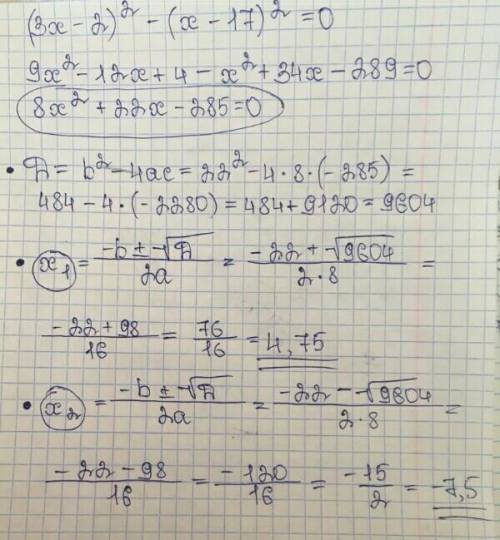 (3x - 2)² - (x - 17)² = 0
9x² - 12x + 4 - x² + 34x - 289 = 0
8x² + 22x - 285 = 0
• D = b² - 4ac = 22² - 4 · 8 · (-285) =
484 - 4 · (-2280) = 484 + 9120 = 9604
• x₁ = (-b ± √D)/(2a) = (-22 + √9604)/(2 · 8) =
(-22 + 98)/16 = 76/16 = 4,75
• x₂ = (-b ± √D)/(2a) = (-22 - √9604)/(2 · 8) =
(-22 - 98)/16 = -120/16 = -15/2 = -7,5